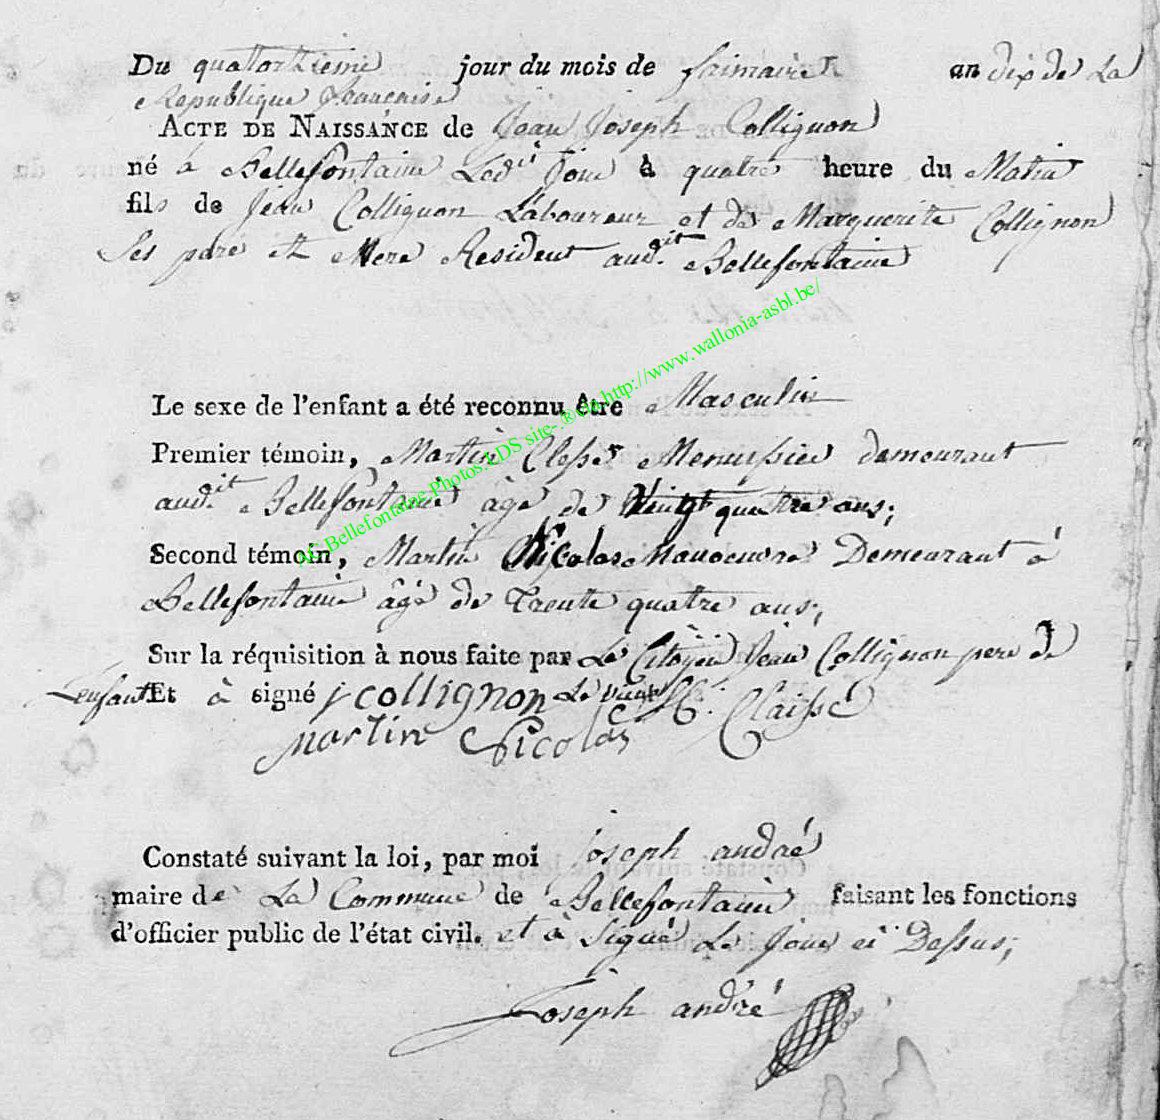 Du quatorzieme jour du mois de frimaire an dix de La
Republique francaise
ACTE DE NAISSANCE de Jean Joseph Collignon
né à Bellefontaine Ledit Jour à quatre heure du Matin
fils de Jean Collignon Laboureur et de Marguerite Collignon
Ses pere et Mere Resident audit Bellefontaine
Le sexe de l'enfant a été reconnu être Masculin
Premier témoin, Martin Clesse Menuisier demeurant
audit Bellefontaine âgé de Vingt quatre ans;
Second témoin, Martin Nicolas Manoeuvre Demeurant à
Bellefontaine âgé de Trente quatre ans;
Sur la réquisition à nous faite par Le Citoyen Jean Collignon pere de
Lenfant Et à signé j collignon Claisse
martin Nicolas
Constaté suivant la loi, par moi joseph andré
maire de La Commune de Bellefontaine faisant les fonctions
d'officier public de l'état civil. et à signé Le Jour ci Dessus;
Joseph andré
AC Bellefontaine Photos LDS site-®via http://www.wallonia-asbl.be/